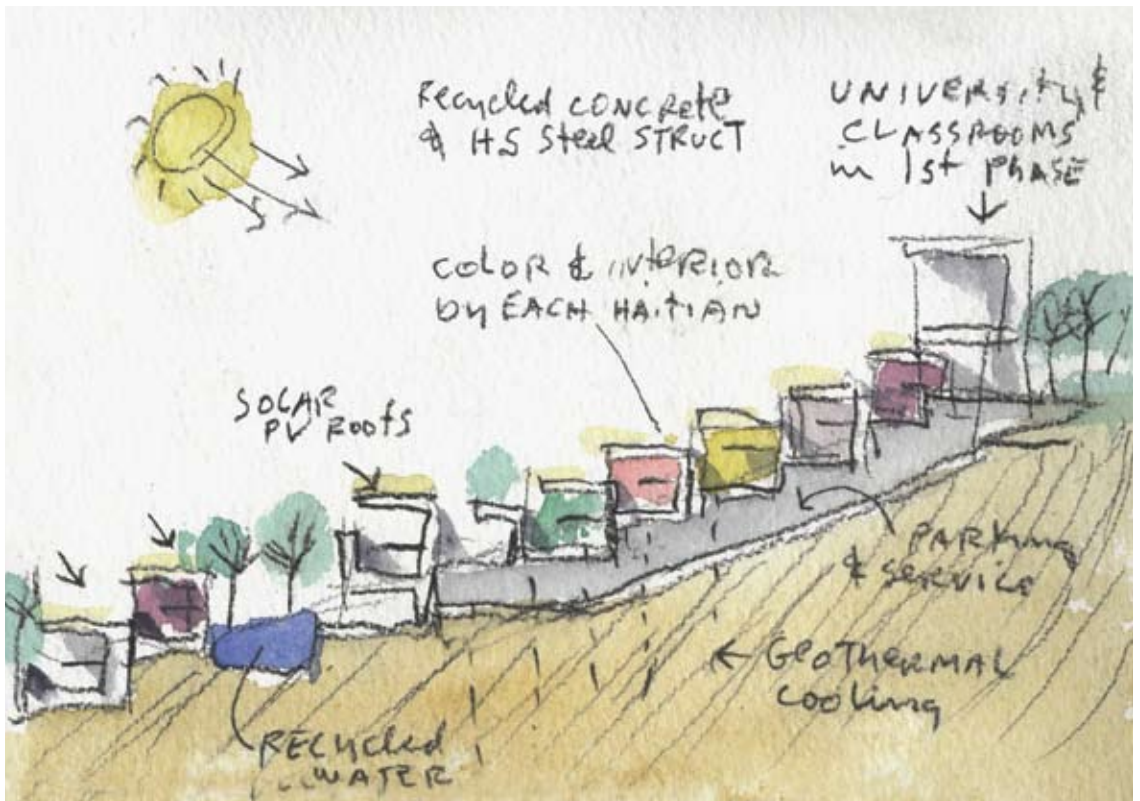 Recycled CONCRETE
& HS Steel STRUCT
UNIVERSITY &
CLASSROOMS
in 1st PHASE
COLOR & INTERIOR
by EACH HAITIAN
SOLAR
PV ROOFS
PARKING
& SERVICE
← GEOTHERMAL
Cooling
RECYCled
WATER